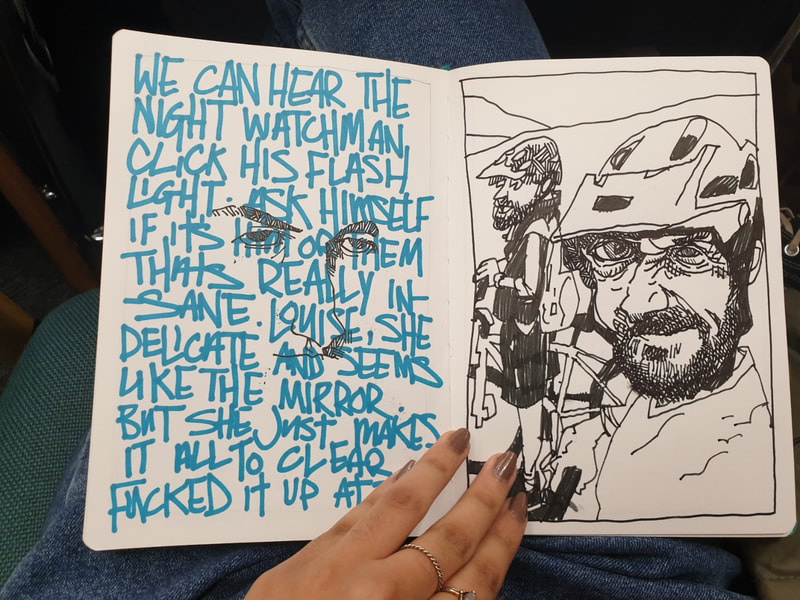 WE CAN HEAR THE
NIGHT WATCHMAN
CLICK HIS FLASH
LIGHT. ASK HIMSELF
IF ITS HIM OR THEM
THATS REALLY IN-
SANE. LOUISE, SHE
DELICATE AND SEEMS
LIKE THE MIRROR.
BUT SHE JUST MAKES
IT ALL TO CLEAR
FUCKED IT UP